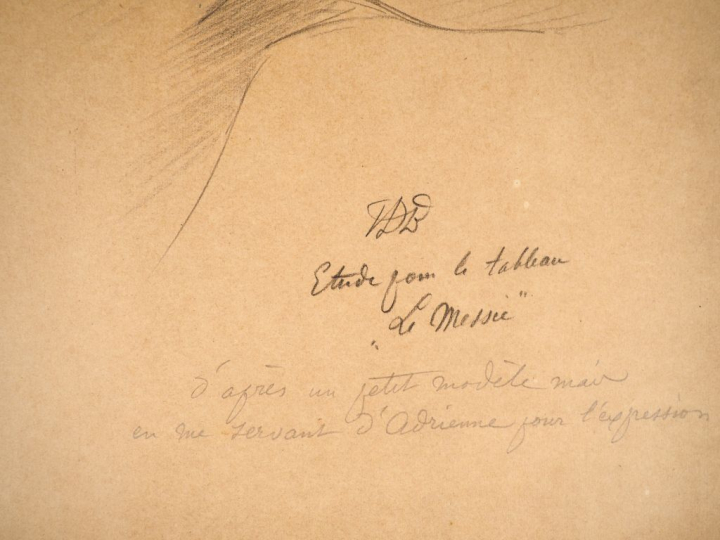 Etude pour le tableau
"Le Messie"
d'après un petit modèle mais
en me servant d'Adrienne pour l'expression